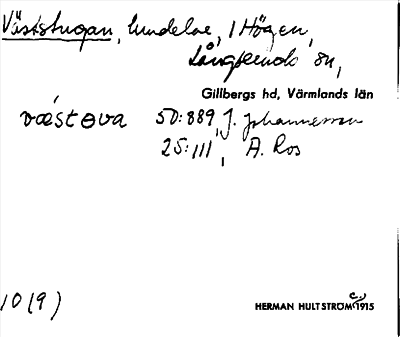 Väststugan, lundelar, 1 Högen,
Långserud sn,
Gillbergs hd, Värmlands län
væstøva 50:889, J. Johannesson
25:111, A. Ros
10(9)
HERMAN HULTSTRÖM c. 1915